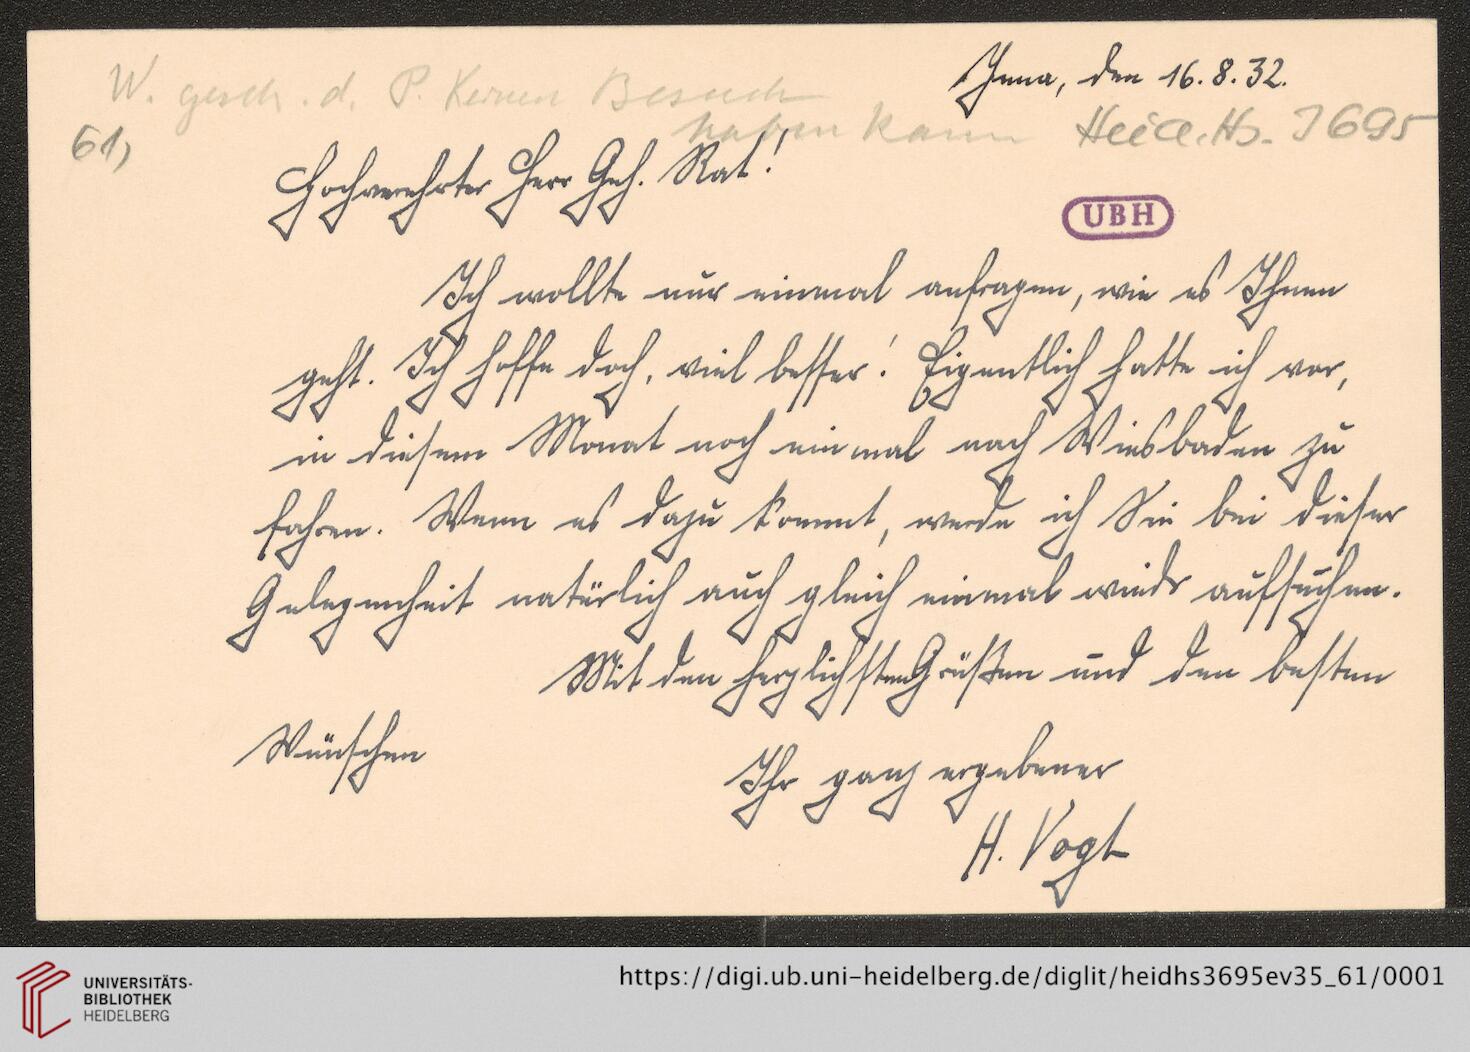 Jena, den 16.8.32.
W. gesch. d. P. Besuch
haben kann Heid. Hs. 3695
61)
Hochverehrter Herr Geh. Rat!
UBH
Ich wollte nur einmal anfragen, wie es Ihnen
geht. Ich hoffe doch, viel besser! Eigentlich hatte ich vor,
in diesem Monat noch einmal nach Wiesbaden zu
fahren. Wenn es dazu kommt, werde ich Sie bei dieser
Gelegenheit natürlich auch gleich einmal wieder aufsuchen.
Mit den herzlichsten Grüßen und den besten
Wünschen
Ihr ganz ergebener
H. Vogt
UNIVERSITÄTS-
BIBLIOTHEK
HEIDELBERG
https://digi.ub.uni-heidelberg.de/diglit/heidhs3695ev35_61/0001